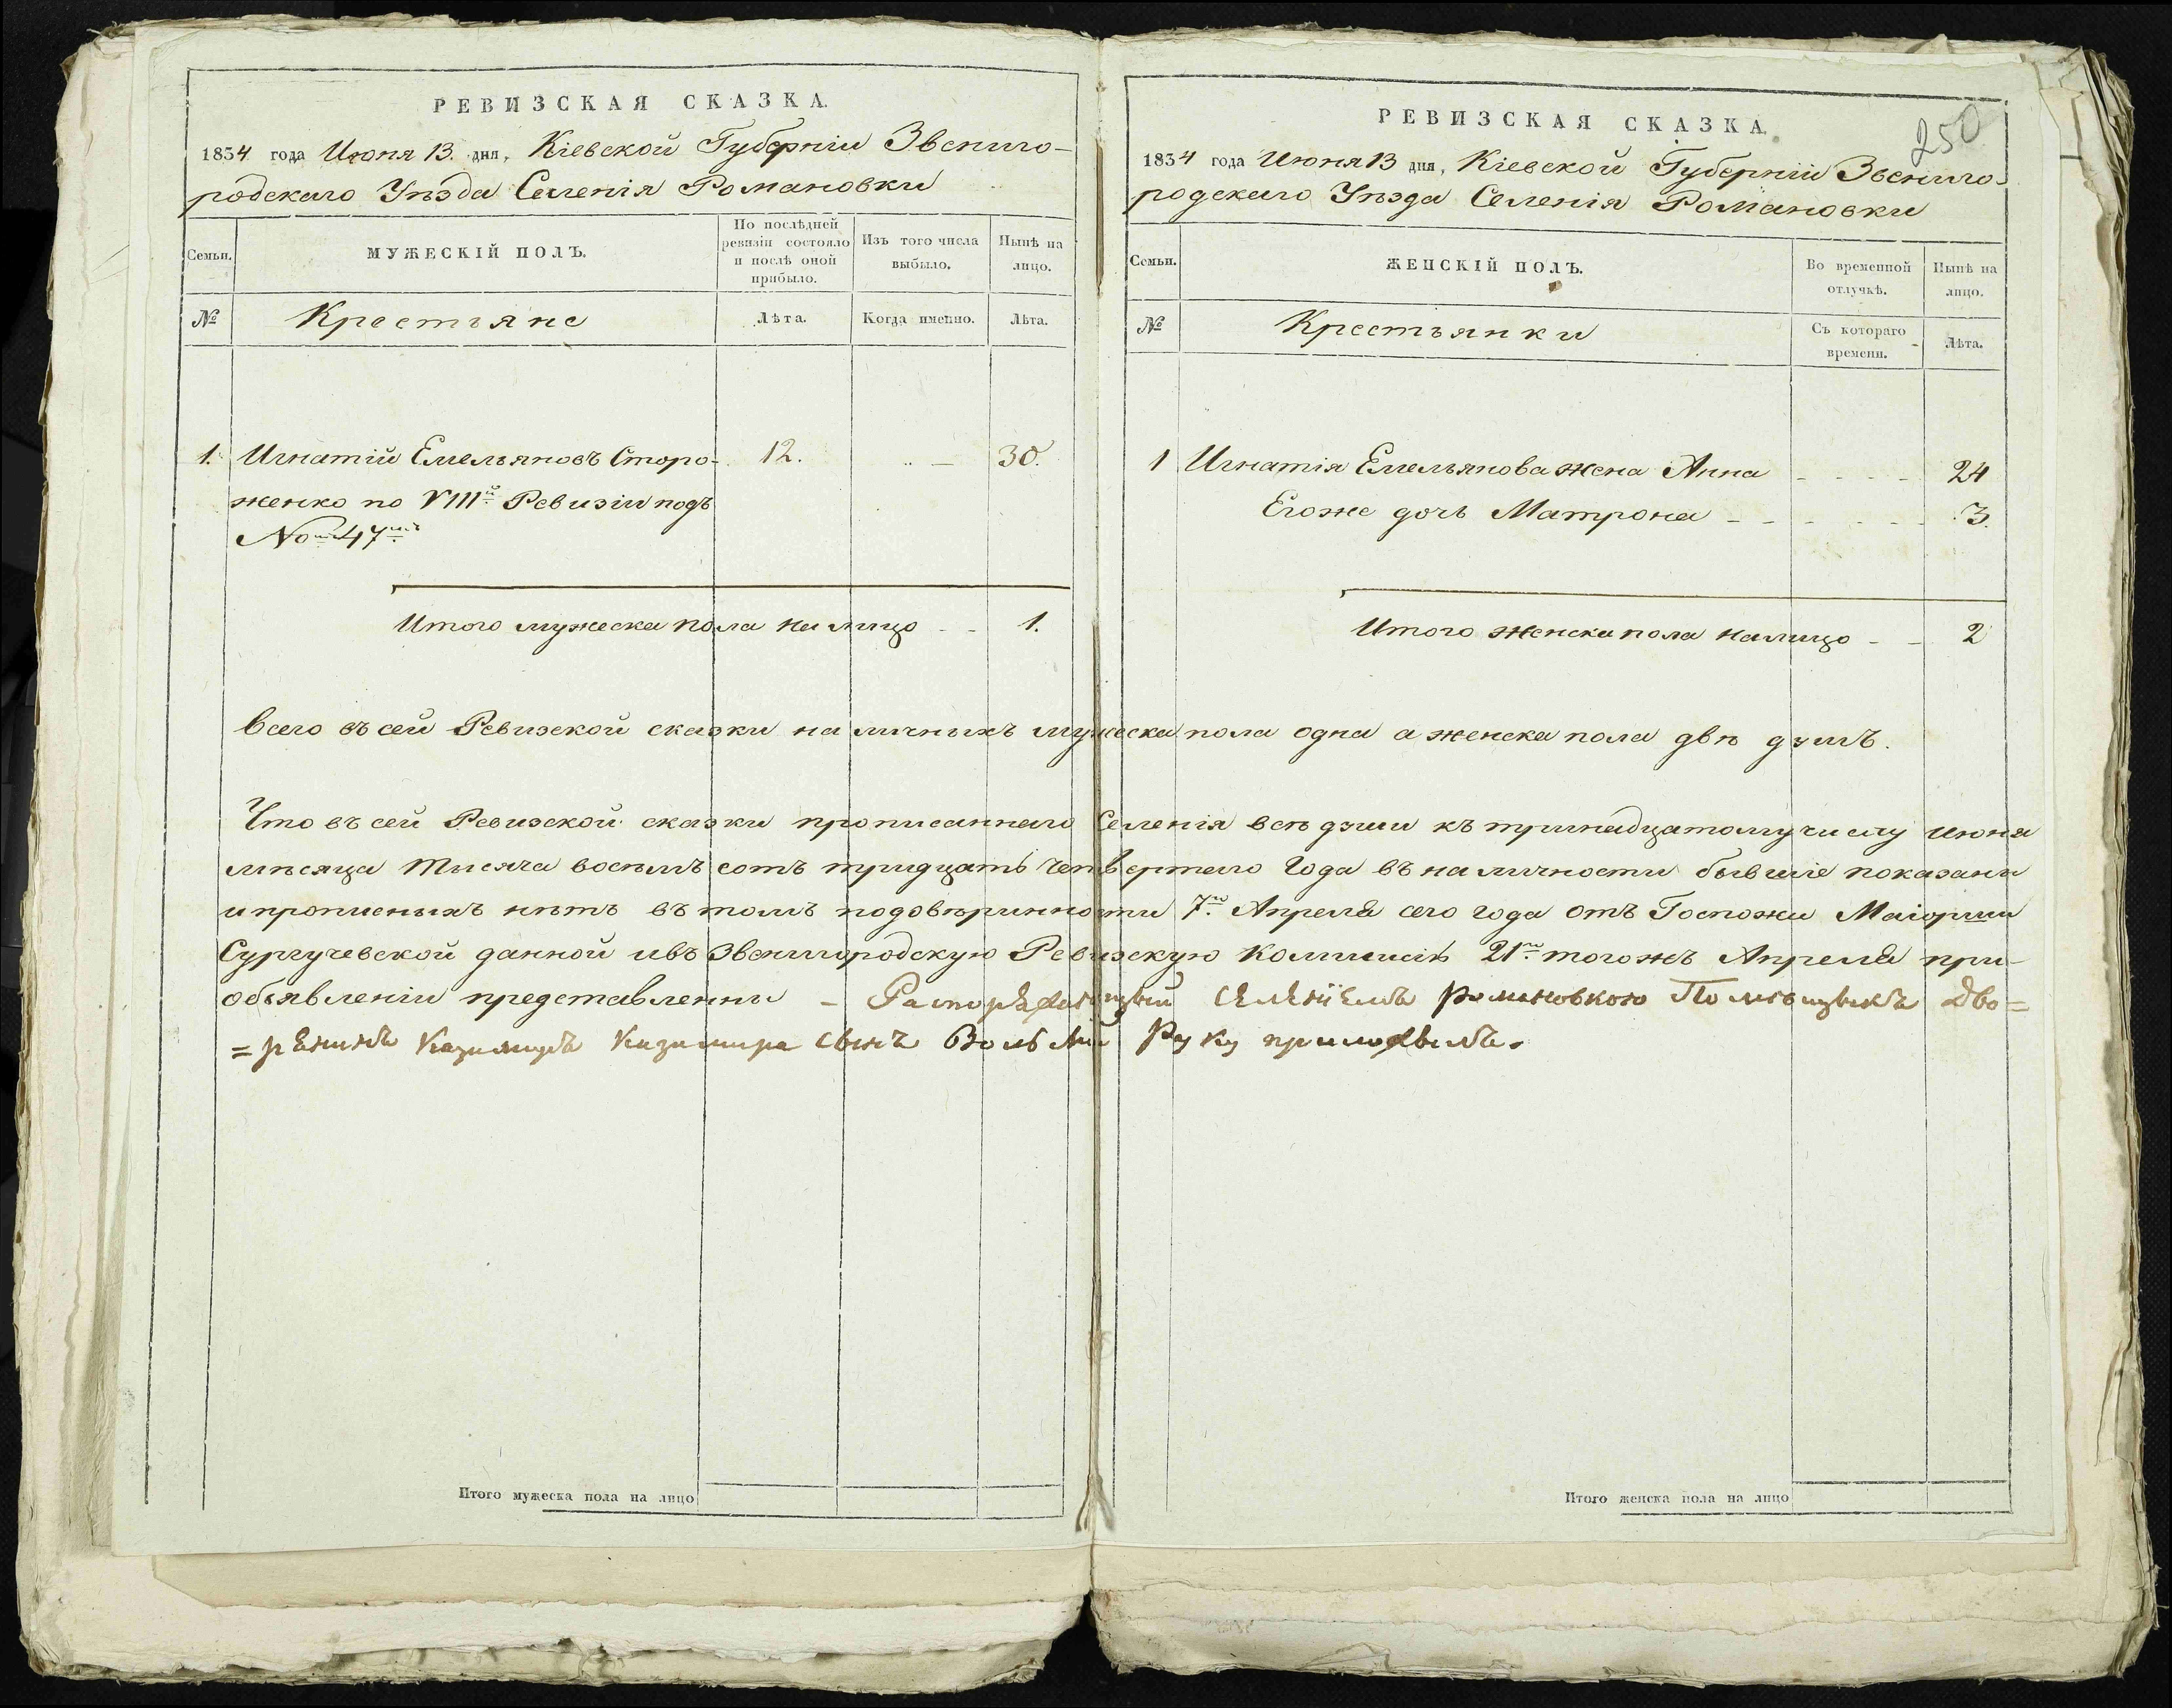 РЕВИЗСКАЯ СКАЗКА.
1834 года Июня 13. дня, Кіевской Губерніи Звениго-
родскаго Уѣзда Селенія Романовки
Семьи.
МУЖЕСКІЙ ПОЛЪ.
По послѣдней ревизіи состояло и послѣ оной прибыло.
Изъ того числа выбыло.
Нынѣ на лицо.
№
Крестьяне
Лѣта.
Когда именно.
Лѣта.
1. Игнатій Емельяновъ Сторо- 12. 30.
женко по VIII й Ревизіи подъ
No 47
Итого мужеска пола на лицо 1.
250
РЕВИЗСКАЯ СКАЗКА.
1834 года Июня 13 дня, Кіевской Губерніи Звениго-
родскаго Уѣзда Селенія Романовки
Семьи.
ЖЕНСКІЙ ПОЛЪ.
Во временной отлучкѣ.
Нынѣ на лицо.
№
Крестьянки
Съ котораго времени.
Лѣта.
1 Игнатія Емельянова жена Анна 24
Егоже дочь Матрона 3.
Итого женска пола налицо 2
Всего въ сей Ревизской сказки на личныхъ мужеска пола одна а женска пола двѣ душъ.
Что въ сей Ревизской сказки прописаннаго Селенія всѣ души къ тринадцатому числу июня
мѣсяца тысяча восѣмъ сотъ тридцать четвертаго года въ наличности бывшіе показаны
и прописныхъ нѣтъ въ томъ подовѣринности 7го Апреля сего года отъ Госпожи Маіорши
Сургучевской данной ивъ Звенигородскую Ревизскую Коммисію 21го тогожъ Апреля при-
объявленіи представленны – Распоряжающый Селеніемъ Романовкою Помѣщыкъ Дво=
=ренинъ Казимиръ Казимира сынъ Руку приложылъ.
Итого мужеска пола на лицо
Итого женска пола на лицо